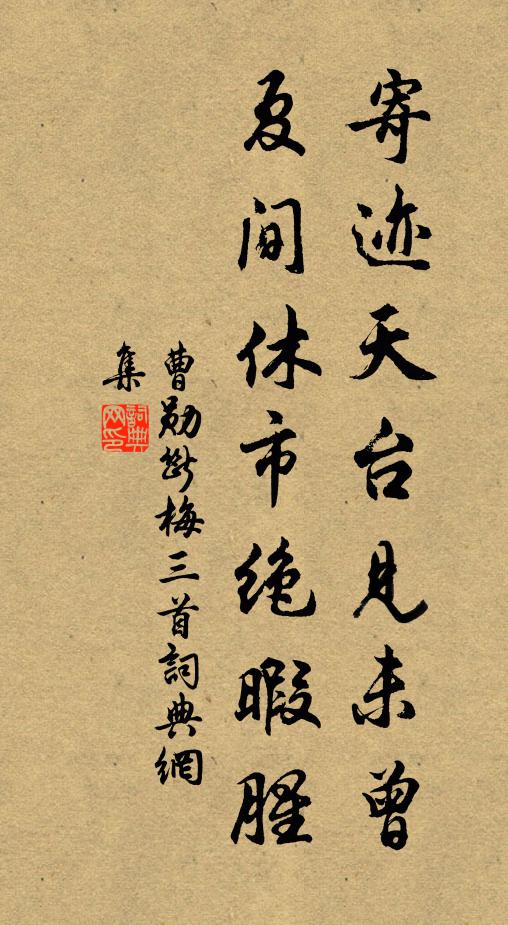 寄迹天台見未曾
夏間休市绝暇腥
曹勛斷梅三首詞典網
集
詞典网印